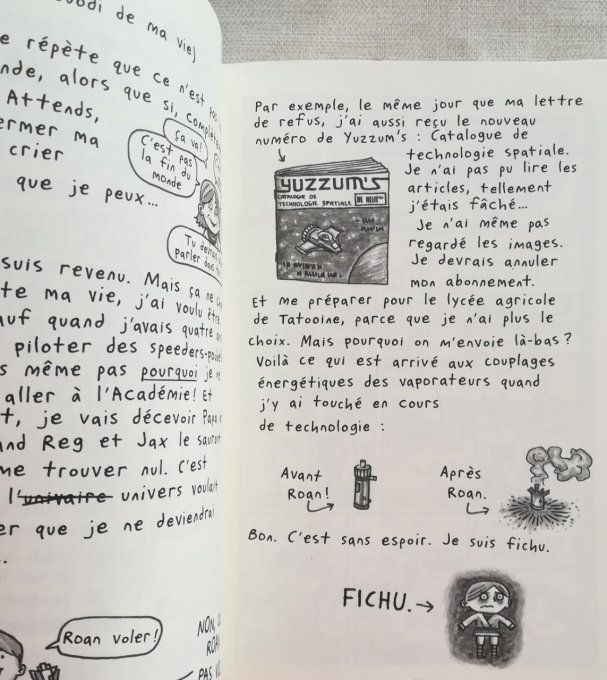 de ma vie)
répète que ce n'est pas
alors que si,
Attends,
ma
crier
que je peux...
ça va!
C'est pas
la fin du
monde
Tu
parler
suis revenu. Mais ça ne
ma vie, j'ai voulu être
quand j'avais quatre
piloter des
même pas pourquoi je
aller à l'Académie! Et
je vais décevoir
Reg et Jax le
me trouver nul. C'est
l'univaire univers voulait
que je ne deviendrai
Roan voler!
NON,
PAS
Par exemple, le même jour que ma lettre
de refus, j'ai aussi reçu le nouveau
numéro de Yuzzum's : Catalogue de
technologie spatiale.
Je n'ai pas pu lire les
articles, tellement
j'étais fâché...
Je n'ai même pas
regardé les images.
Je devrais annuler
mon abonnement.
YUZZUM'S
CATALOGUE DE
TECHNOLOGIE SPATIALE
Et me préparer pour le lycée agricole
de Tatooine, parce que je n'ai plus le
choix. Mais pourquoi on m'envoie là-bas ?
Voilà ce qui est arrivé aux couplages
énergétiques des vaporateurs quand
j'y ai touché en cours
de technologie :
Avant
Roan!
Après
Roan.
Bon. C'est sans espoir. Je suis fichu.
FICHU.